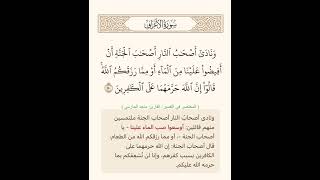 سُورَةُ الأَعْرَافِ
وَنَادَىٰٓ أَصْحَٰبُ ٱلنَّارِ أَصْحَٰبَ ٱلْجَنَّةِ أَنْ
أَفِيضُوا۟ عَلَيْنَا مِنَ ٱلْمَآءِ أَوْ مِمَّا رَزَقَكُمُ ٱللَّهُ ۚ
قَالُوٓا۟ إِنَّ ٱللَّهَ حَرَّمَهُمَا عَلَى ٱلْكَٰفِرِينَ ٥٠
ونادى أصحاب النار أصحاب الجنة ملتمسين
منهم قائلين: أوسعوا صب الماء علينا - يا
أصحاب الجنة -، أو مما رزقكم الله من الطعام.
قال أصحاب الجنة: إن الله حرمهما على
الكافرين بسبب كفرهم، وإنا لن نُسْعِفكم بما
حرمه الله عليكم.